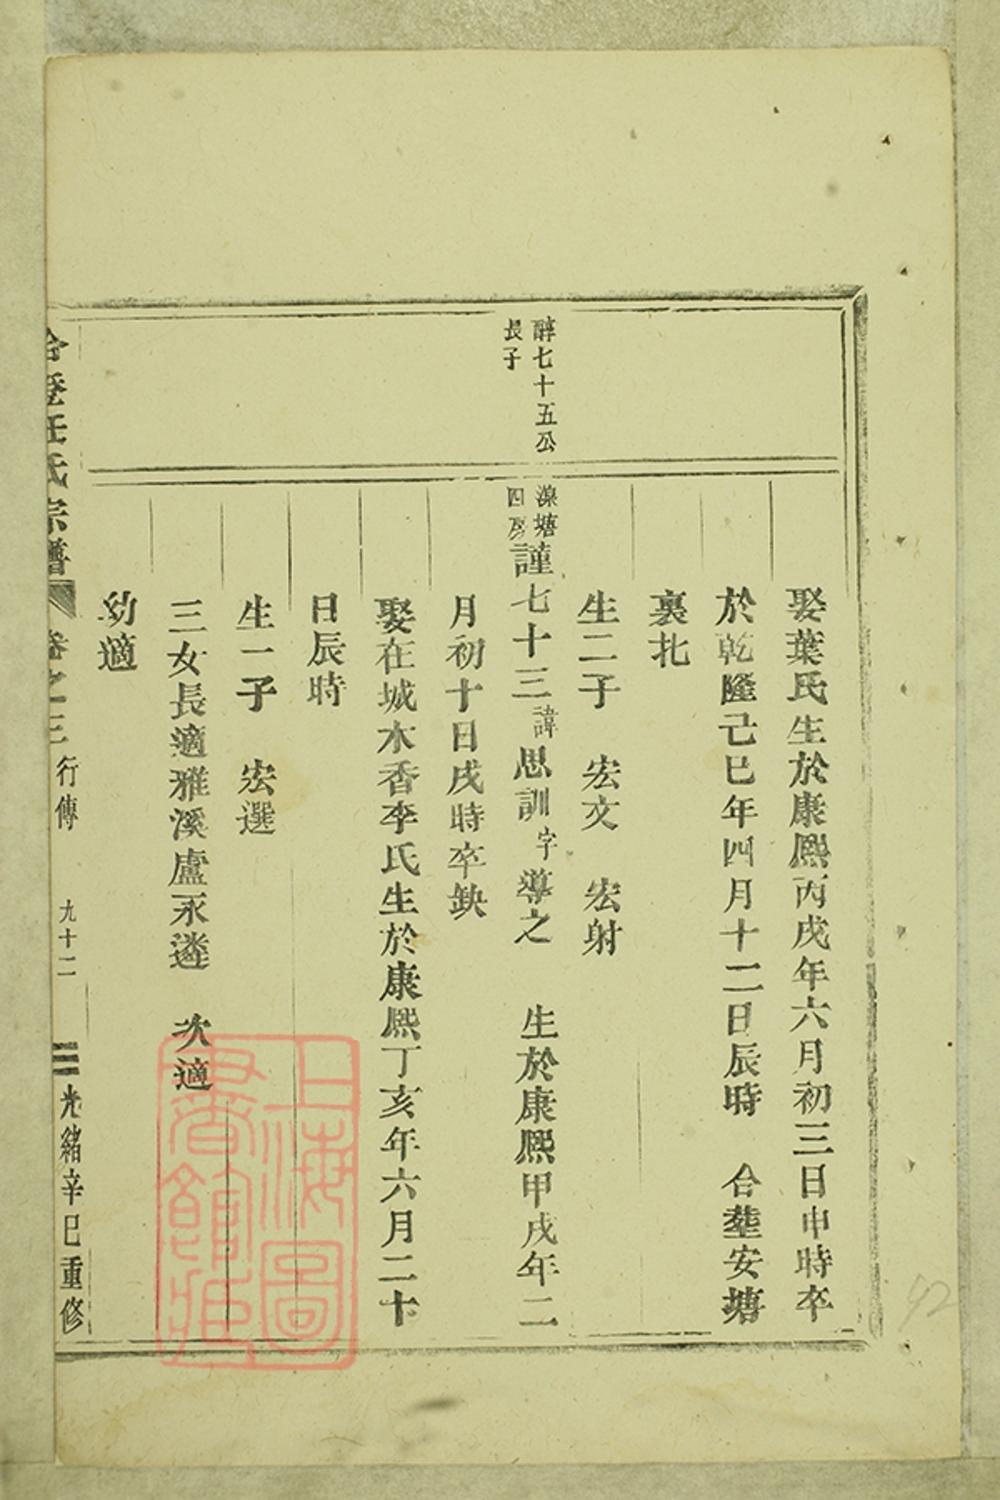 娶葉氏生於康熙丙戌年六月初三日申時卒
於乾隆己巳年四月十二日辰時　合塟安塘
裏圠
生二子　宏文　宏射
醉七十五公
長子
濼塘
四房
謹七十三諱思訓字導之　生於康熙甲戌年二
月初十日戌時卒缺
娶在城木香李氏生於康熙丁亥年六月二十
日辰時
生一子　宏選
三女長適雅溪盧永遴　次適
幼適
任氏宗譜　卷之三　行傳　九十二　光緒辛巳重修
上海圖
書館藏
92